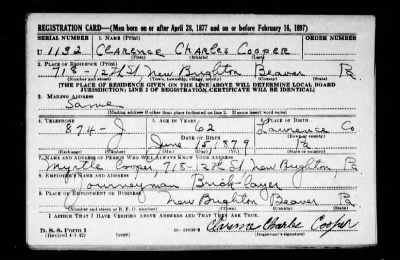 REGISTRATION CARD—(Men born on or after April 28, 1877 and on or before February 16, 1897)
SERIAL NUMBER 1. NAME (Print) ORDER NUMBER
U 1132 CLARENCE CHARLES COOPER
(First) (Middle) (Last)
2. PLACE OF RESIDENCE (Print)
718-12th St. New Brighton Beaver Pa.
(Number and street) (Town, township, village, or city) (County) (State)
[THE PLACE OF RESIDENCE GIVEN ON THE LINE ABOVE WILL DETERMINE LOCAL BOARD
JURISDICTION; LINE 2 OF REGISTRATION CERTIFICATE WILL BE IDENTICAL]
3. MAILING ADDRESS
Same
[Mailing address if other than place indicated on line 2. If same insert word same]
4. TELEPHONE 5. AGE IN YEARS 6. PLACE OF BIRTH
874-J 62 Lawrence Co
DATE OF BIRTH
June 15 1879 Pa
(Exchange) (Number) (Mo.) (Day) (Yr.) (State or country)
7. NAME AND ADDRESS OF PERSON WHO WILL ALWAYS KNOW YOUR ADDRESS
Myrtle Cooper, 718-12th St New Brighton, Pa
8. EMPLOYER'S NAME AND ADDRESS
Journeyman Brick layer
9. PLACE OF EMPLOYMENT OR BUSINESS
New Brighton Beaver Pa
(Number and street or R. F. D. number) (Town) (County) (State)
I AFFIRM THAT I HAVE VERIFIED ABOVE ANSWERS AND THAT THEY ARE TRUE.
D. S. S. Form 1
(Revised 4-1-42) (over) Clarence Charles Cooper
(Registrant's signature)